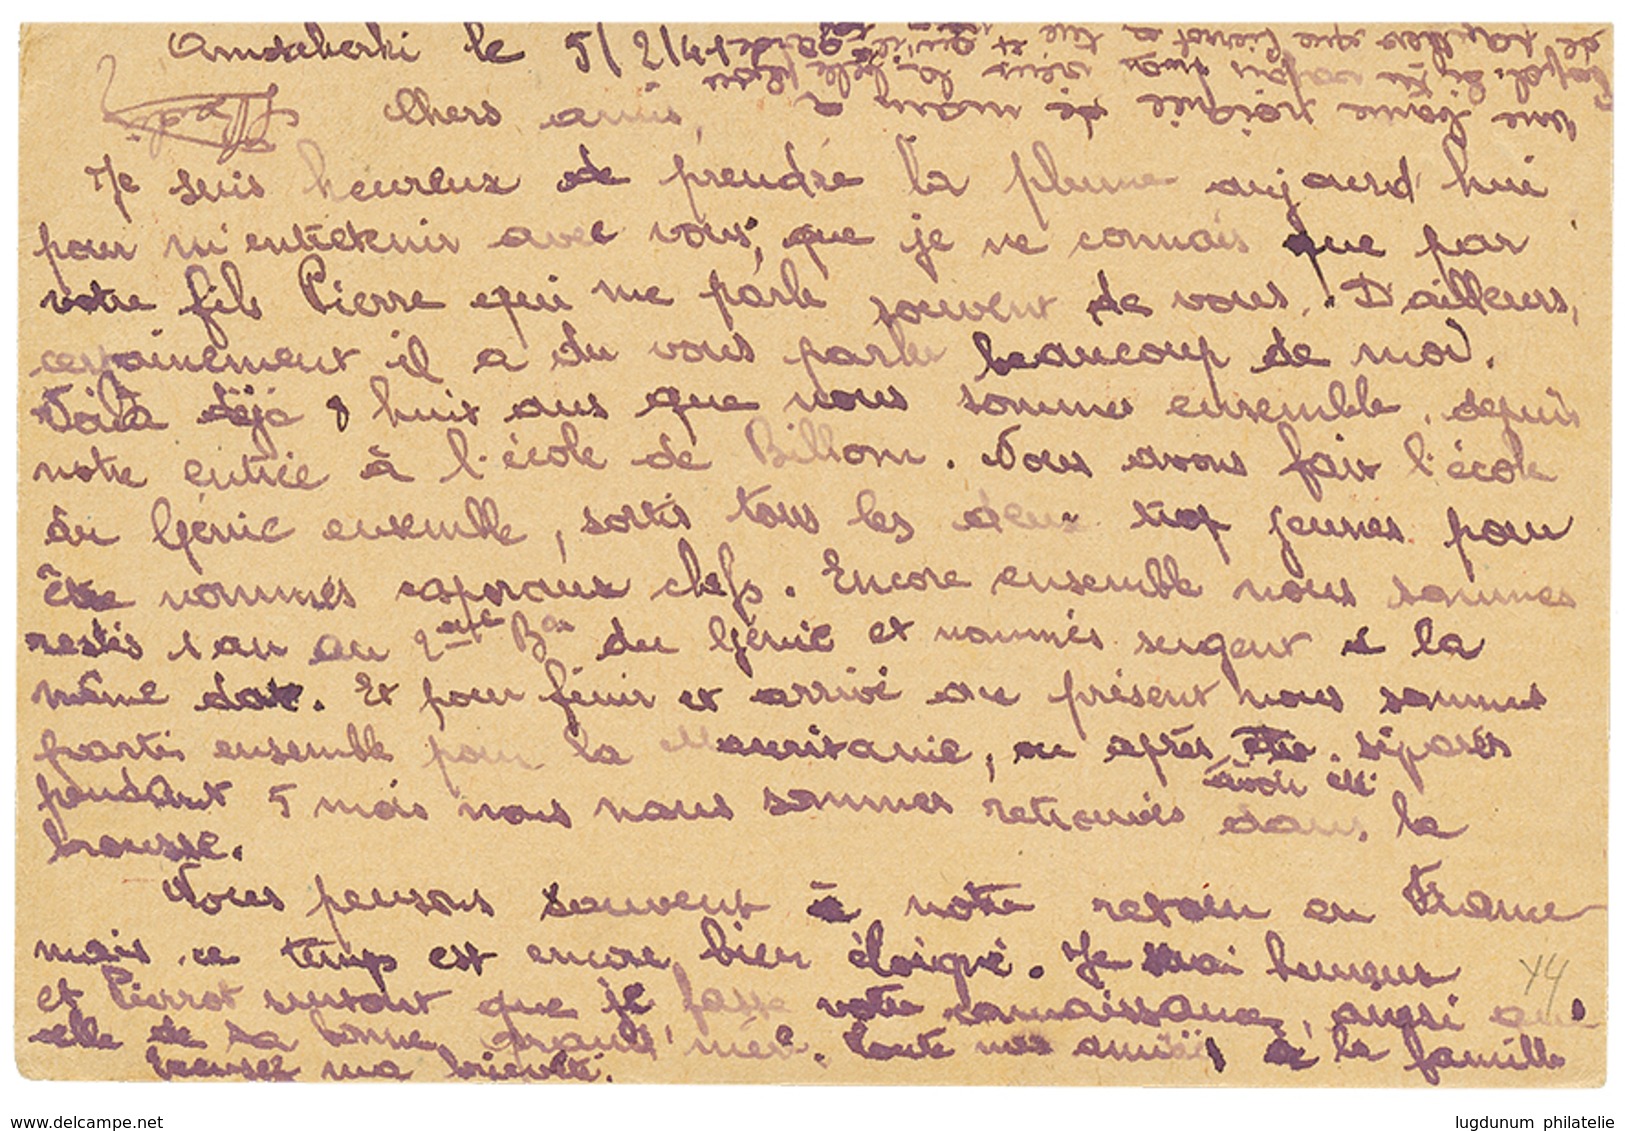 le 5/2/41
Chers amis,
Je suis heureux de prendre la plume aujourd'hui
pour m'entretenir avec vous, que je ne connais que par
votre fils Pierre qui me parle souvent de vous. D'ailleurs,
certainement il a du vous parler beaucoup de moi.
Voilà déjà 8 huit ans que nous sommes ensemble, depuis
notre entrée à l'école de Billom. Nous avons fait l'école
du Génie ensemble, sortis tous les deux trop jeunes pour
être nommés caporaux chefs. Encore ensemble nous sommes
restés 1 an au 2ème Bon du Génie et nommés sergent à la
même date. Et pour finir et arrivé au présent nous sommes
partis ensemble pour la Mauritanie, ou après avoir été séparés
pendant 5 mois nous nous sommes retrouvés dans la
brousse.
Nous pensons souvent à notre retour en France
mais ce temps est encore bien éloigné. Je serai heureux
et Pierrot surtout que je fasse votre connaissance, aussi que
elle de sa bonne grand'mère. Toute mes amitiés à la famille
ma brièveté.
Une bonne poignée de main
44
www.delcampe.net
lugdunum philatelie